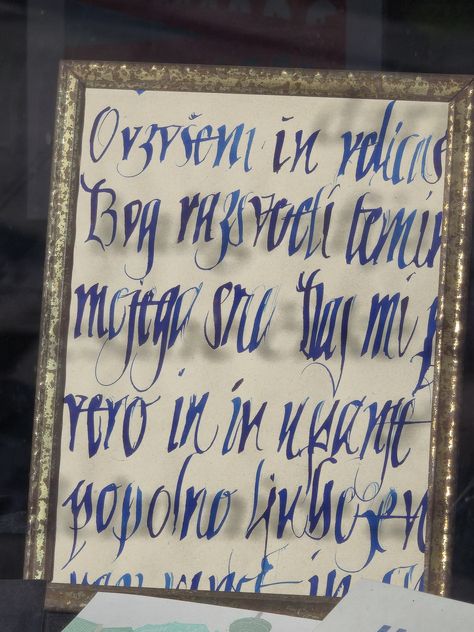 O vzvšeni in velicas
Bog razsvetli temin
mojega srca Daj mi p
vero in in upanje
popolno ljubezen